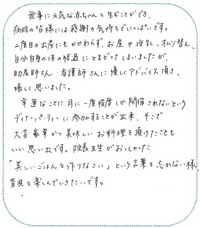 無事に元気な赤ちゃんを生むことができ、
病院の皆様には感謝の気持ちでいっぱいです。
2度目の出産にもかかわらず、お産で
自分自身の体の
助産師さん、看護師さんに優しくアドバイス頂き、
嬉しく思いました。
幸運なことに月に一度程度しか開催されないという
ディナーパーティーに参加することが出来、そこで
大変豪華で美味しいお料理を頂けたことも
いい思い出です。院長先生がおっしゃった
「美しいごはんを作りなさい」という言葉を忘れない様、
育児を楽しんでいきたいです。